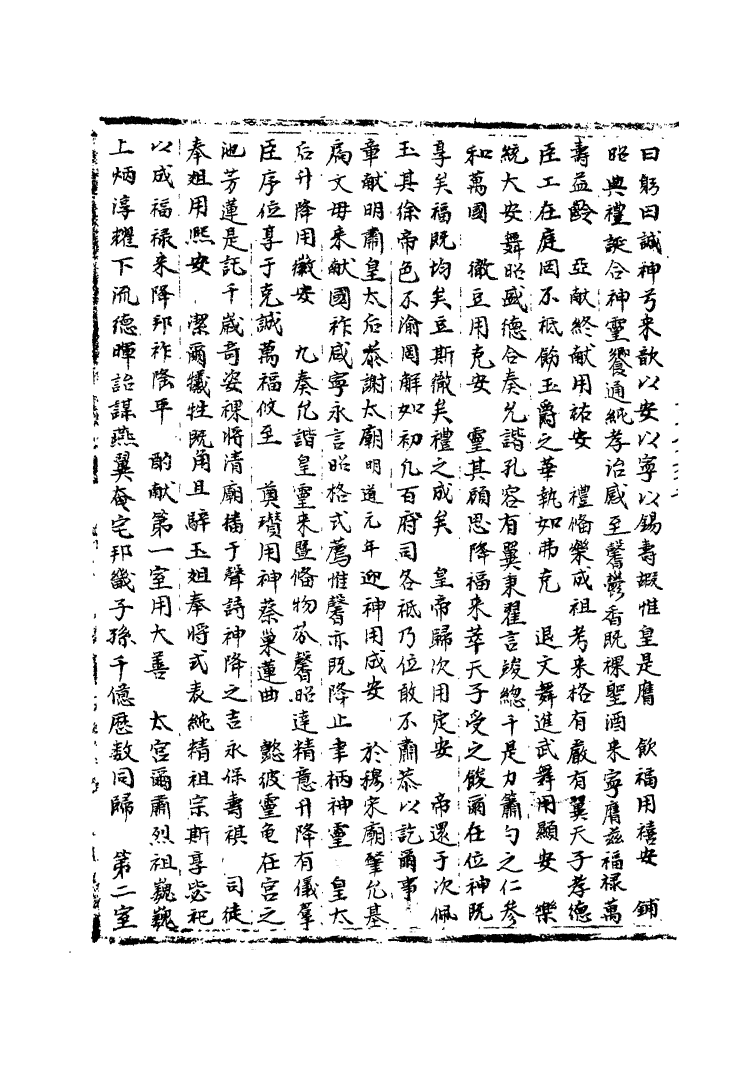 曰躬曰誠神兮来歆以安以寧以錫壽嘏惟皇是膺　飲福用禧安　鋪
昭典禮誕合神靈饗通純孝治感至馨鬱香既祼聖酒来寧膺兹福禄萬
壽益齡　亞献終献用祐安　禮脩樂成祖考来格有嚴有翼天子孝德
臣工在庭罔不祗飭玉爵之華執如弗克　退文舞進武舞用顯安　樂
統大安舞昭盛德合奏允諧孔容有翼東翟言竣總干是力簫勺之仁叅
和萬國　徹豆用克安　靈其顧思降福来萃天子受之餕爾在位神既
享矣福既均矣豆斯徹矣禮之成矣　皇帝歸次用定安　帝還于次佩
玉其徐帝色不渝罔解如初允百府司各祗乃位敢不肅恭以訖爾事
章献明肅皇太后恭謝太廟明道元年迎神用成安　於穆宋廟肇允基
扃文毋来献國祚咸寧永言昭格式薦惟馨亦既降止聿柄神靈　皇太
后升降用徽安　九奏允諧皇靈来曁脩物苾馨昭達精意升降有儀羣
臣序位享于克誠萬福攸至　奠瓚用神蔡巢蓮曲　懿彼靈龟在宫之
池芳蓮是託千歳竒姿祼將清廟播于聲詩神降之吉永保壽祺　司徒
奉爼用熙安　潔爾犧牲既角且騂玉爼奉將式表純精祖宗斯享毖祀
以成福禄来降邦祚隆平　酌献第一室用大善　太宫爾肅烈祖巍巍
上炳淳耀下流德暉詒謀燕翼奄宅邦畿子孫千億歷数同歸　第二室